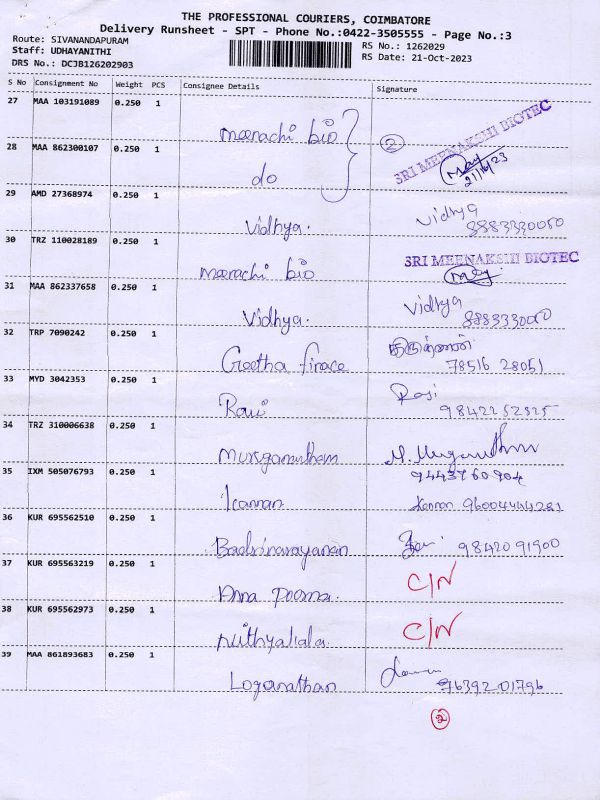 THE PROFESSIONAL COURIERS, COIMBATORE
Delivery Runsheet - SPT - Phone No.:0422-3505555 - Page No.:3
Route: SIVANANDAPURAM
RS No.: 1262029
Staff: UDHAYANITHI
RS Date: 21-Oct-2023
DRS No.: DCJB126202903
S No Consignment No Weight PCS Consignee Details Signature
27 MAA 103191089 0.250 1
meenachi bio
② SRI MEENAKSHI BIOTEC
28 MAA 862300107 0.250 1
do
21/10/23
29 AMD 27368974 0.250 1
Vidhya.
Vidhya
30 TRZ 110028189 0.250 1
meenachi bio
SRI MEENAKSHI BIOTEC
31 MAA 862337658 0.250 1
Vidhya.
Vidhya
32 TRP 7090242 0.250 1
Geetha finace
78516 28051
33 MYD 3042353 0.250 1
Ravi
98422 52525
34 TRZ 310006638 0.250 1
35 IXM 505076793 0.250 1
Kannan
Kannan
36 KUR 695562510 0.250 1
Badrinarayanan
98420 91900
37 KUR 695563219 0.250 1
Anna
C/N
38 KUR 695562973 0.250 1
C/N
39 MAA 861893683 0.250 1
Loganathan
76392 01796
②